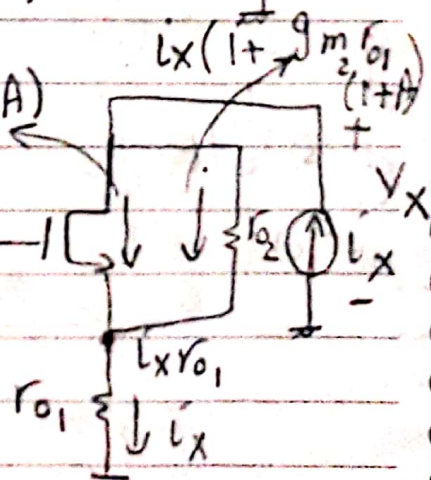 ix(1+gm2ro1
(1+A)
A)
+
Vx
ro2
ix
-
ixro1
ro1
ix